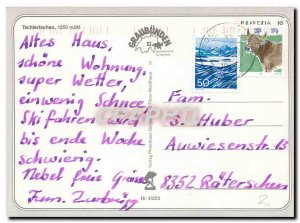 Tschiertschen, 1350 müM
GRAUBÜNDEN
HELVETIA
50
Altes Haus,
schöne Wohnung,
super Wetter,
ein wenig Schnee
Ski fahren wird
bis ende Woche
schwierig.
Nebel freie Grüsse
Fam.
Fam.
S. Huber
Auwiesenstr. 13
8352 Räterschen
Nr. 4/233